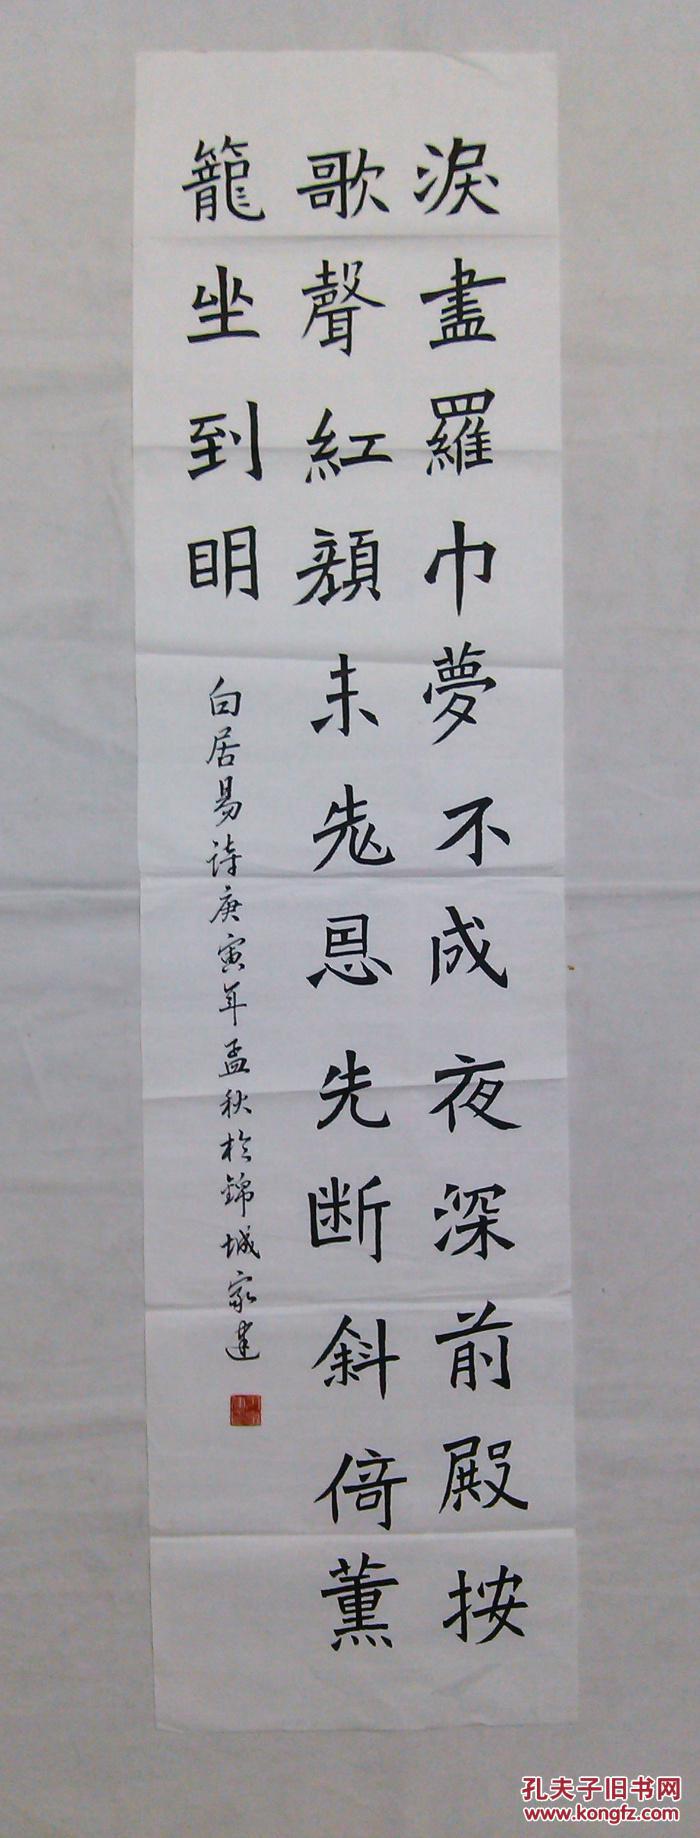 淚盡羅巾夢不成夜深前殿按
歌聲紅顏未老恩先断斜倚薰
籠坐到明
白居易詩庚寅年孟秋於錦城家建
孔夫子旧书网
www.kongfz.com